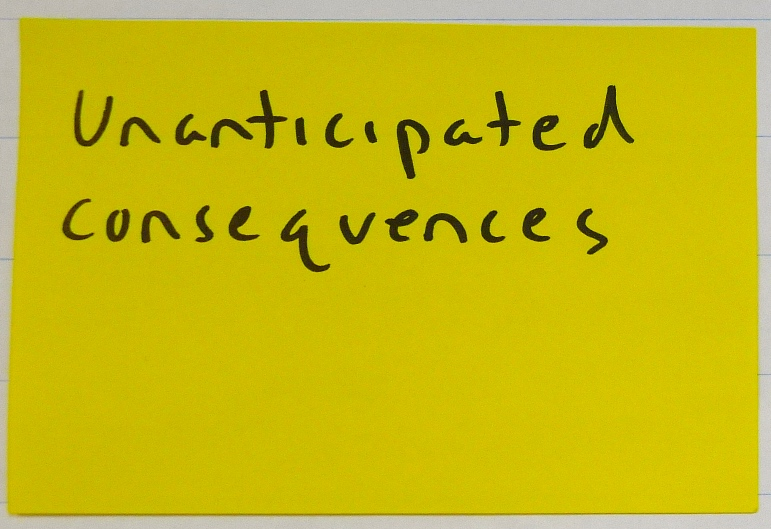 Unanticipated
consequences